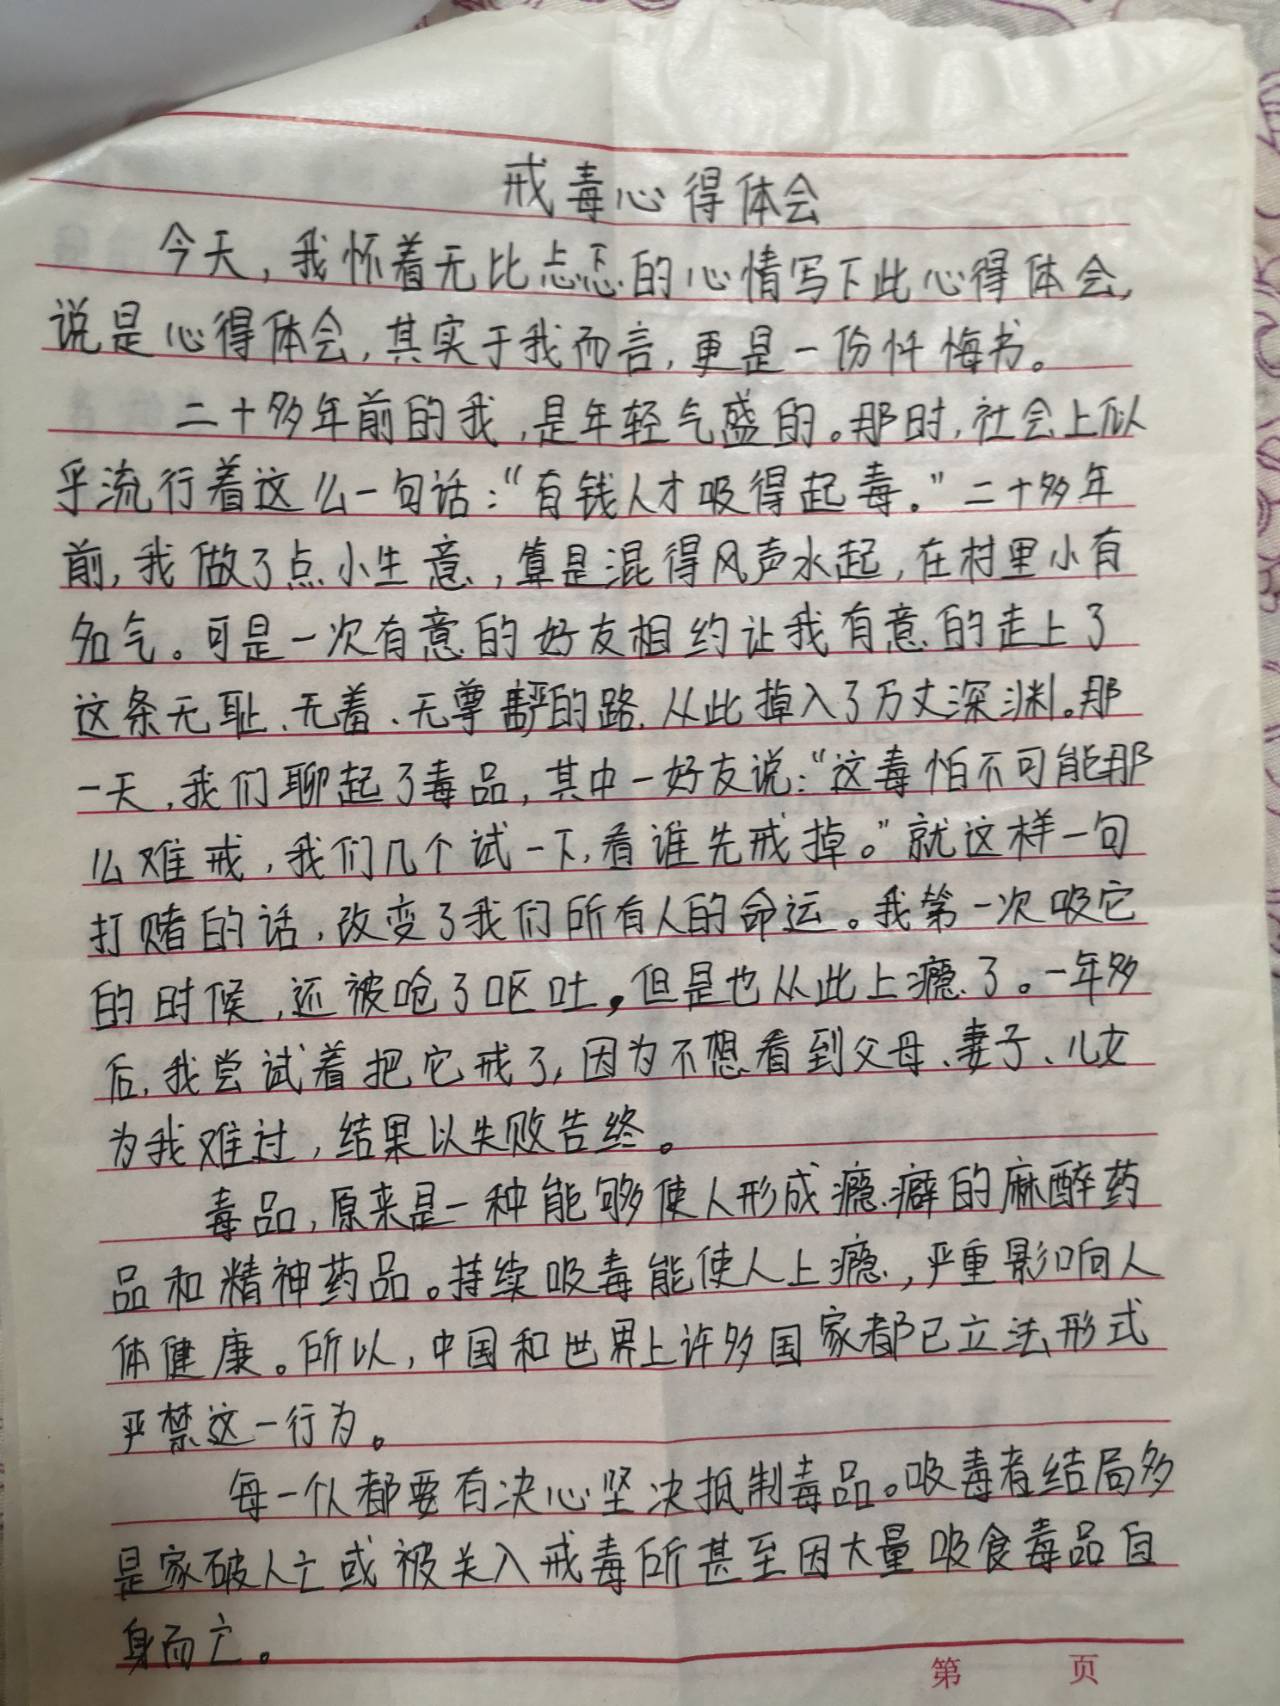 戒毒心得体会
今天,我怀着无比忐忑的心情写下此心得体会,
说是心得体会,其实于我而言,更是一份忏悔书。
二十多年前的我,是年轻气盛的。那时,社会上似
乎流行着这么一句话:“有钱人才吸得起毒。”二十多年
前,我做了点小生意,算是混得风声水起,在村里小有
名气。可是一次有意的好友相约让我有意的走上了
这条无耻、无羞、无尊严的路,从此掉入了万丈深渊。那
一天,我们聊起了毒品,其中一好友说:“这毒怕不可能那
么难戒,我们几个试一下,看谁先戒掉。”就这样一句
打赌的话,改变了我们所有人的命运。我第一次吸它
的时候,还被呛了呕吐,但是也从此上瘾了。一年多
后,我尝试着把它戒了,因为不想看到父母、妻子、儿女
为我难过,结果以失败告终。
毒品,原来是一种能够使人形成瘾癖的麻醉药
品和精神药品。持续吸毒能使人上瘾,严重影响人
体健康。所以,中国和世界上许多国家都已立法形式
严禁这一行为。
每一个人都要有决心坚决抵制毒品。吸毒者结局多
是家破人亡或被关入戒毒所甚至因大量吸食毒品自
身而亡。
第 页